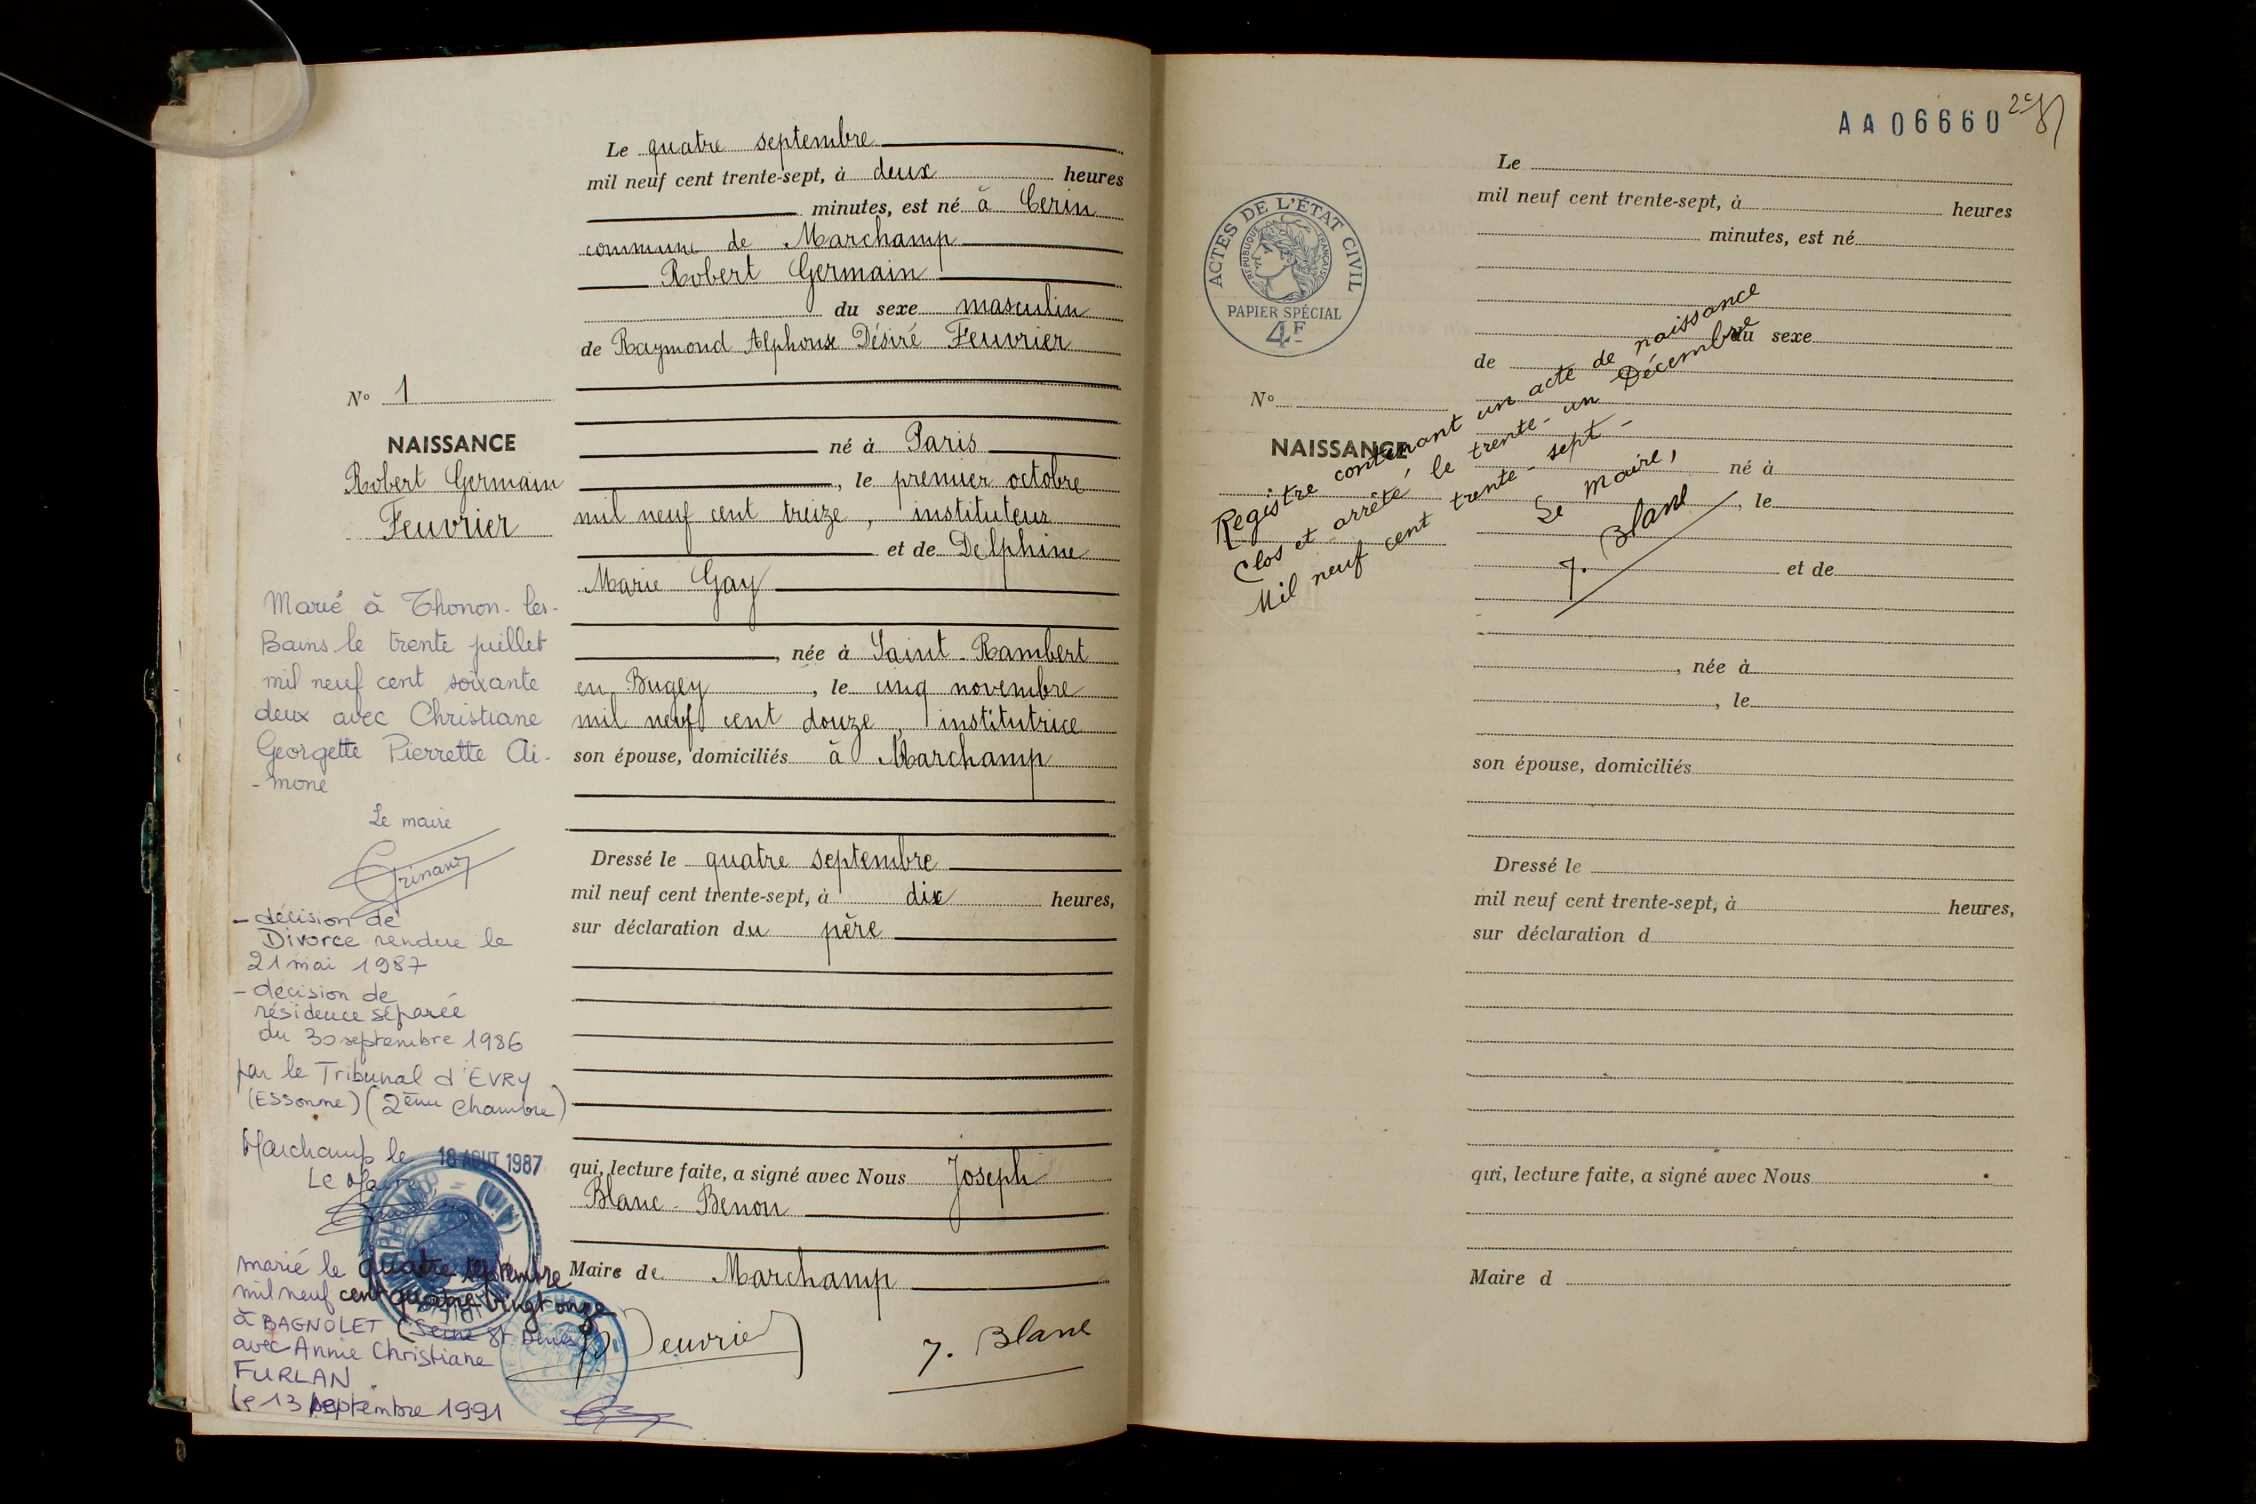 Le quatre septembre
mil neuf cent trente-sept, à deux heures
minutes, est né à Cerin
commune de Marchamp
Robert Germain
du sexe masculin
de Raymond Alphonse Désiré Feuvrier
né à Paris
, le premier octobre
mil neuf cent treize, instituteur
et de Delphine
Marie Gay
, née à Saint-Rambert
en Bugey, le cinq novembre
mil neuf cent douze, institutrice
son épouse, domiciliés à Marchamp
Dressé le quatre septembre
mil neuf cent trente-sept, à dix heures,
sur déclaration du père
qui, lecture faite, a signé avec Nous Joseph
Blanc-Benon
Maire de Marchamp
Feuvrier
J. Blanc
No 1
NAISSANCE
Robert Germain
Feuvrier
Marié à Thonon-les-
Bains le trente juillet
mil neuf cent soixante
deux avec Christiane
Georgette Pierrette Ai-
-mone
Le maire
- décision de
Divorce rendue le
21 mai 1987
- décision de
résidence séparée
du 30 septembre 1986
par le Tribunal d'EVRY
(ESSonne) (2ème Chambre)
Marchamp le 18 AOUT 1987
Le Maire
marié le quatre septembre
mil neuf cent quatre vingt onze
à BAGNOLET (Seine St Denis)
avec Annie Christiane
FURLAN
le 13 septembre 1991
AA06660
ACTES DE L'ÉTAT CIVIL
RÉPUBLIQUE FRANÇAISE
PAPIER SPÉCIAL
4F
Le
mil neuf cent trente-sept, à heures
minutes, est né
du sexe
de
No
NAISSANCE
né à
, le
et de
, née à
, le
son épouse, domiciliés
Dressé le
mil neuf cent trente-sept, à heures,
sur déclaration d
qui, lecture faite, a signé avec Nous
Maire d
Registre contenant un acte de naissance
Clos et arrêté le trente-un Décembre
Mil neuf cent trente-sept-
Le Maire,
J. Blanc